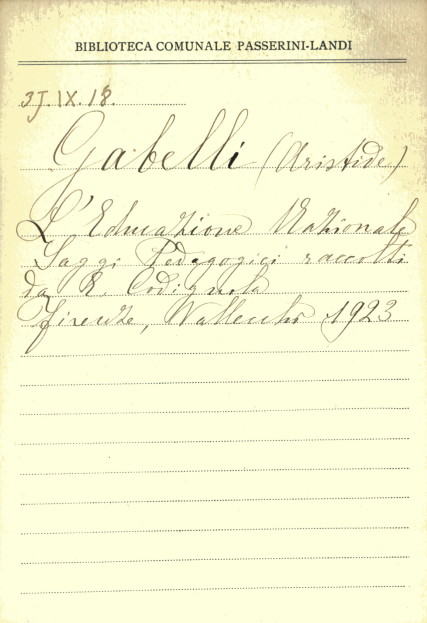 BIBLIOTECA COMUNALE PASSERINI-LANDI
3J.IX.18.
Gabelli (Aristide)
L'Educazione Nazionale
Saggi Pedagogici raccolti
da E. Codignola
Firenze, Vallecchi 1923